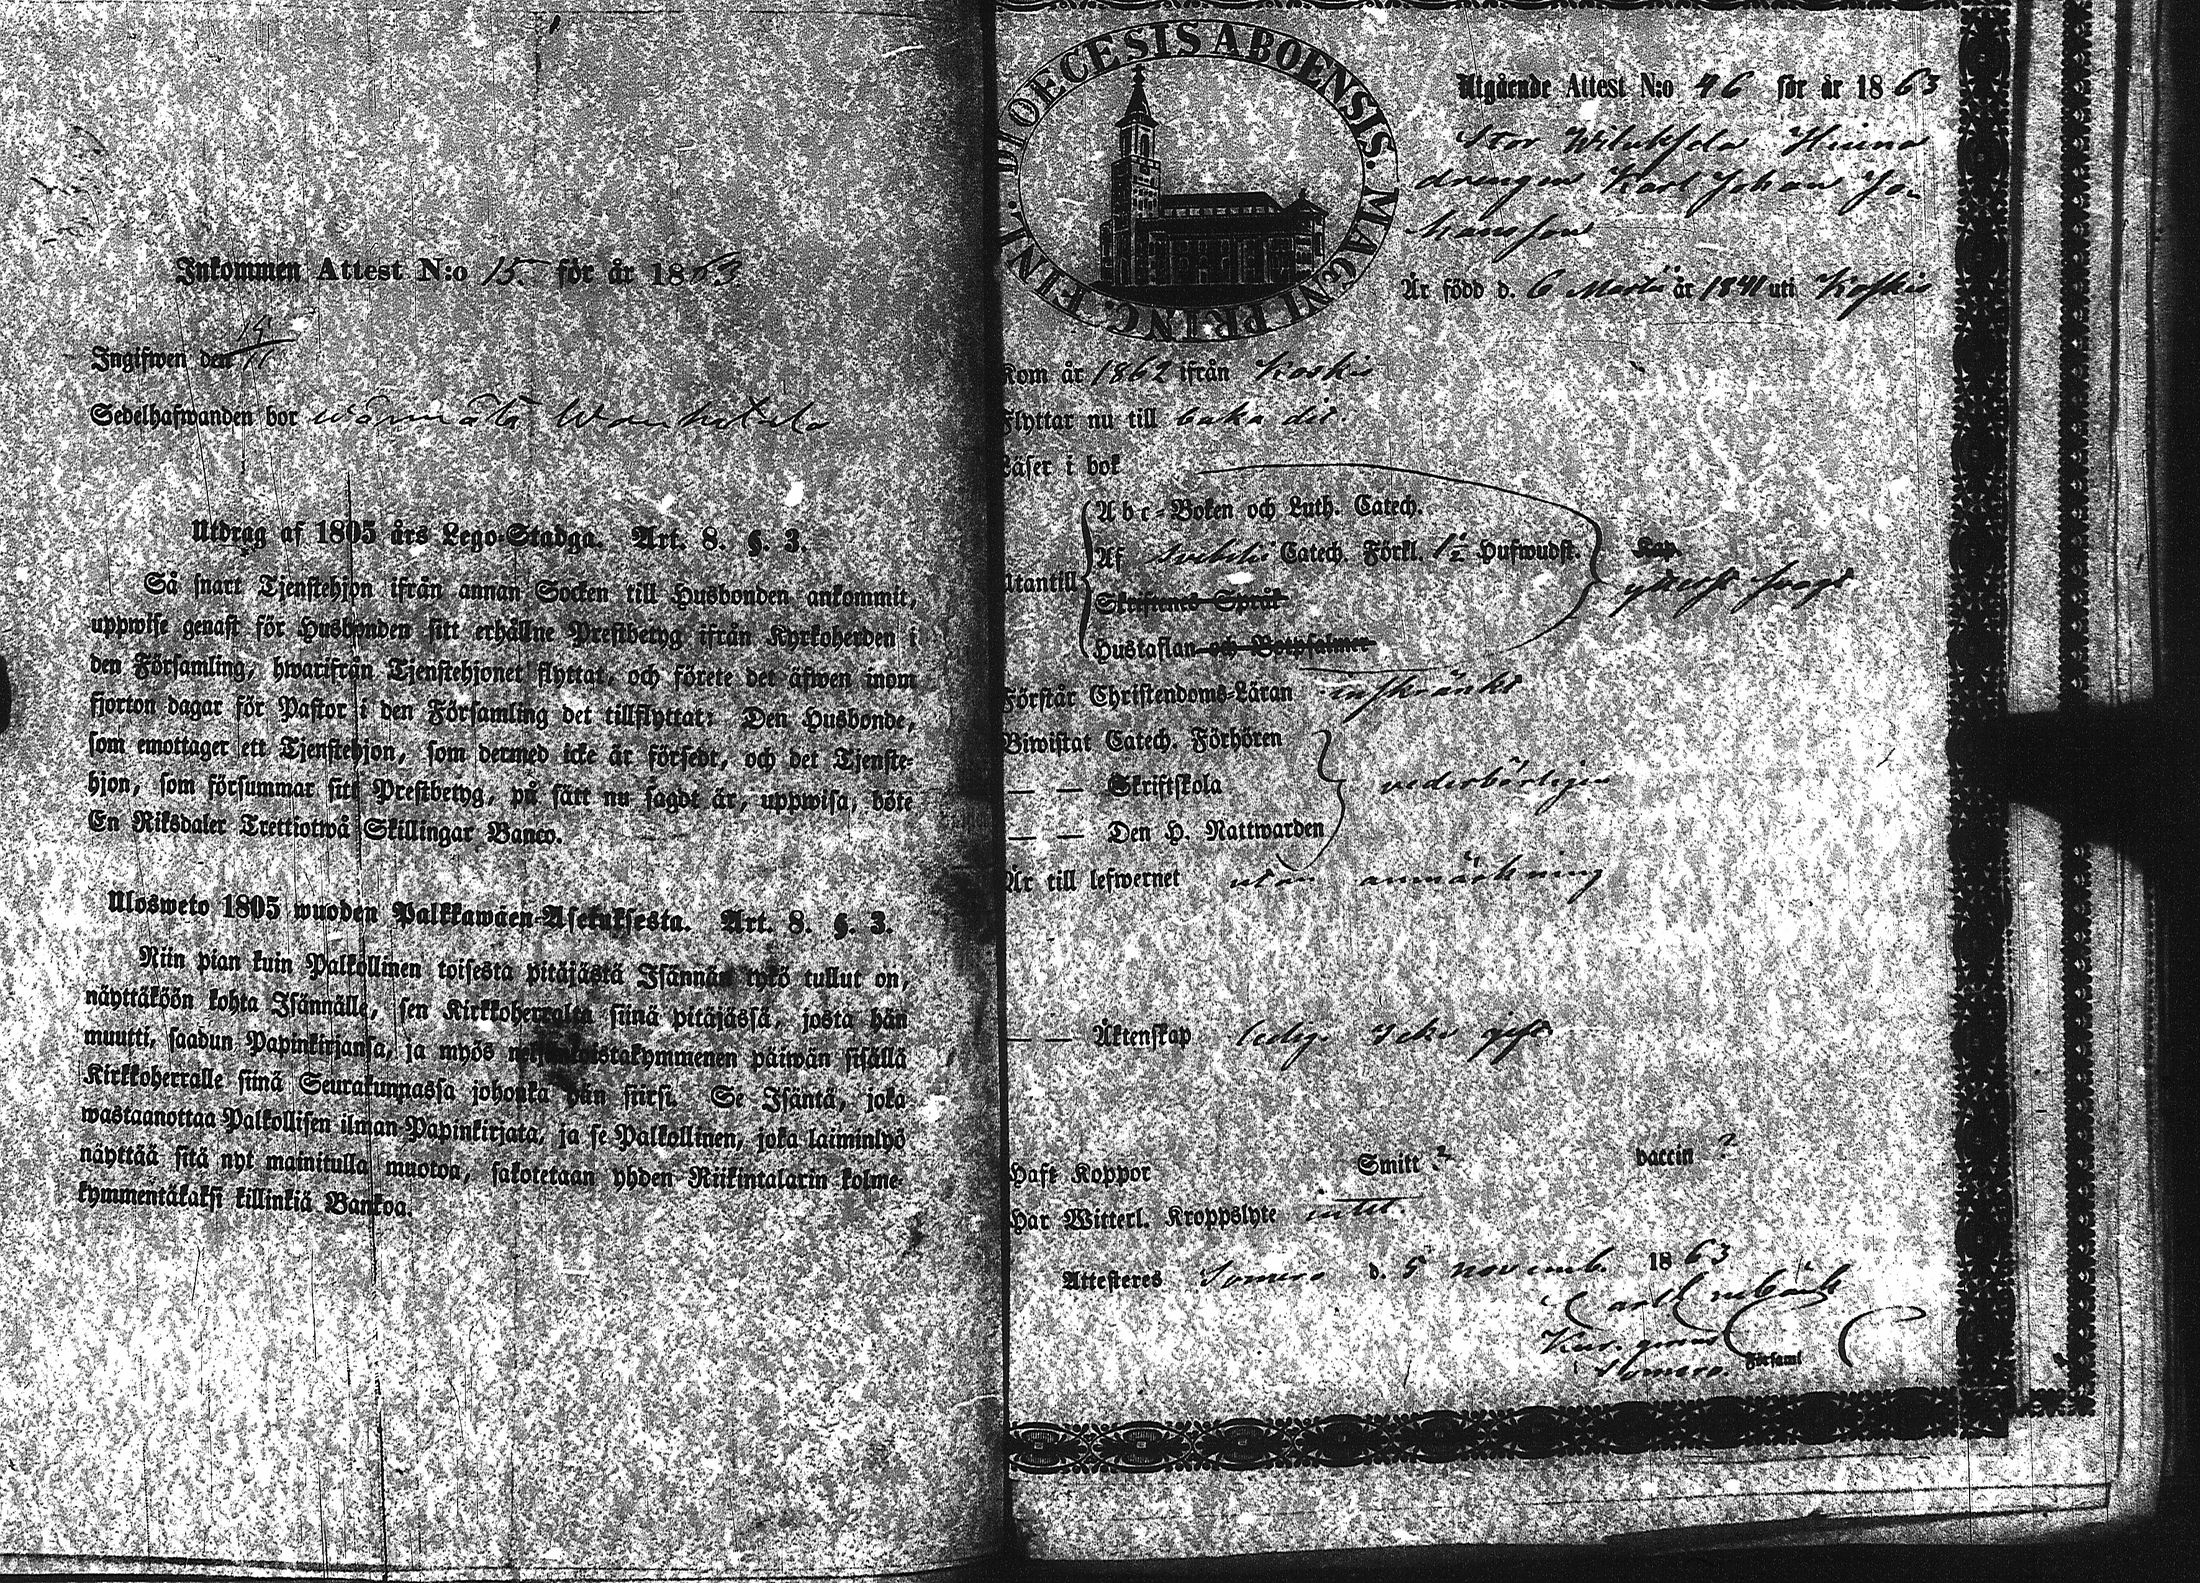 Inkommen Attest N:o 15. för år 1863
Ingifwen den 15/11
Sedelhafwanden bor
Utdrag af 1805 års Lego-Stadga. Art. 8. §. 3.
Så snart Tjenstehjon ifrån annan Socken till Husbonden ankommit,
uppwise genast för Husbonden sitt erhållne Prestbetyg ifrån Kyrkoherden i
den Församling, hwarifrån Tjenstehjonet flyttat, och förete det äfwen inom
fjorton dagar för Pastor i den Församling det tillflyttat: Den Husbonde,
som emottager ett Tjenstehjon, som dermed icke är försedt, och det Tjenste-
hjon, som försummar sitt Prestbetyg, på sätt nu sagdt är, uppwisa, böte
En Riksdaler Trettiotwå Skillingar Banco.
Ulosweto 1805 wuoden Palkkawäen-Asetuksesta. Art. 8. §. 3.
Niin pian kuin Palkollinen toisesta pitäjästä Isännän tykö tullut on,
näyttäköön kohta Isännälle, sen Kirkkoherralta siinä pitäjässä, josta hän
muutti, saadun Papinkirjansa, ja myös neljäntoistakymmenen päiwän sisällä
Kirkkoherralle siinä Seurakunnassa johonka hän siirsi. Se Isäntä, joka
wastaanottaa Palkollisen ilman Papinkirjata, ja se Palkollinen, joka laiminlyö
näyttää sitä nyt mainitulla muotoa, sakotetaan yhden Riikintalarin kolme-
kymmentäkaksi killinkiä Bankoa.
DIOECESIS ABOENSIS. MAGNI PRINC. FINL.
Utgående Attest N:o 46 för år 1863
Stor
drengen Karl Johan Jo-
hansson
Är född d. 6 Martii år 1841 uti Koskis
Kom år 1862 ifrån Koskis
Flyttar nu till baka dit.
Läser i bok
Abc-Boken och Luth. Catech.
Af Svebelii Catech. Förkl. 1½ Hufwudst. Kap.
Utantill ytterst svagt
Skriftenes Språk
Hustaflan och Botpsalmer
Förstår Christendoms-Läran inskränkt
Biwistat Catech. Förhören
— — Skriftskola vederbörligen
— — Den H. Nattwarden
Är till lefwernet utan anmärkning
— — Äktenskap ledig. Icke gift
Haft Koppor Smitt? vaccin?
Har Witterl. Kroppslyte intet.
Attesteres Somero d. 5 novemb. 1863
Carl
Somero. Församl